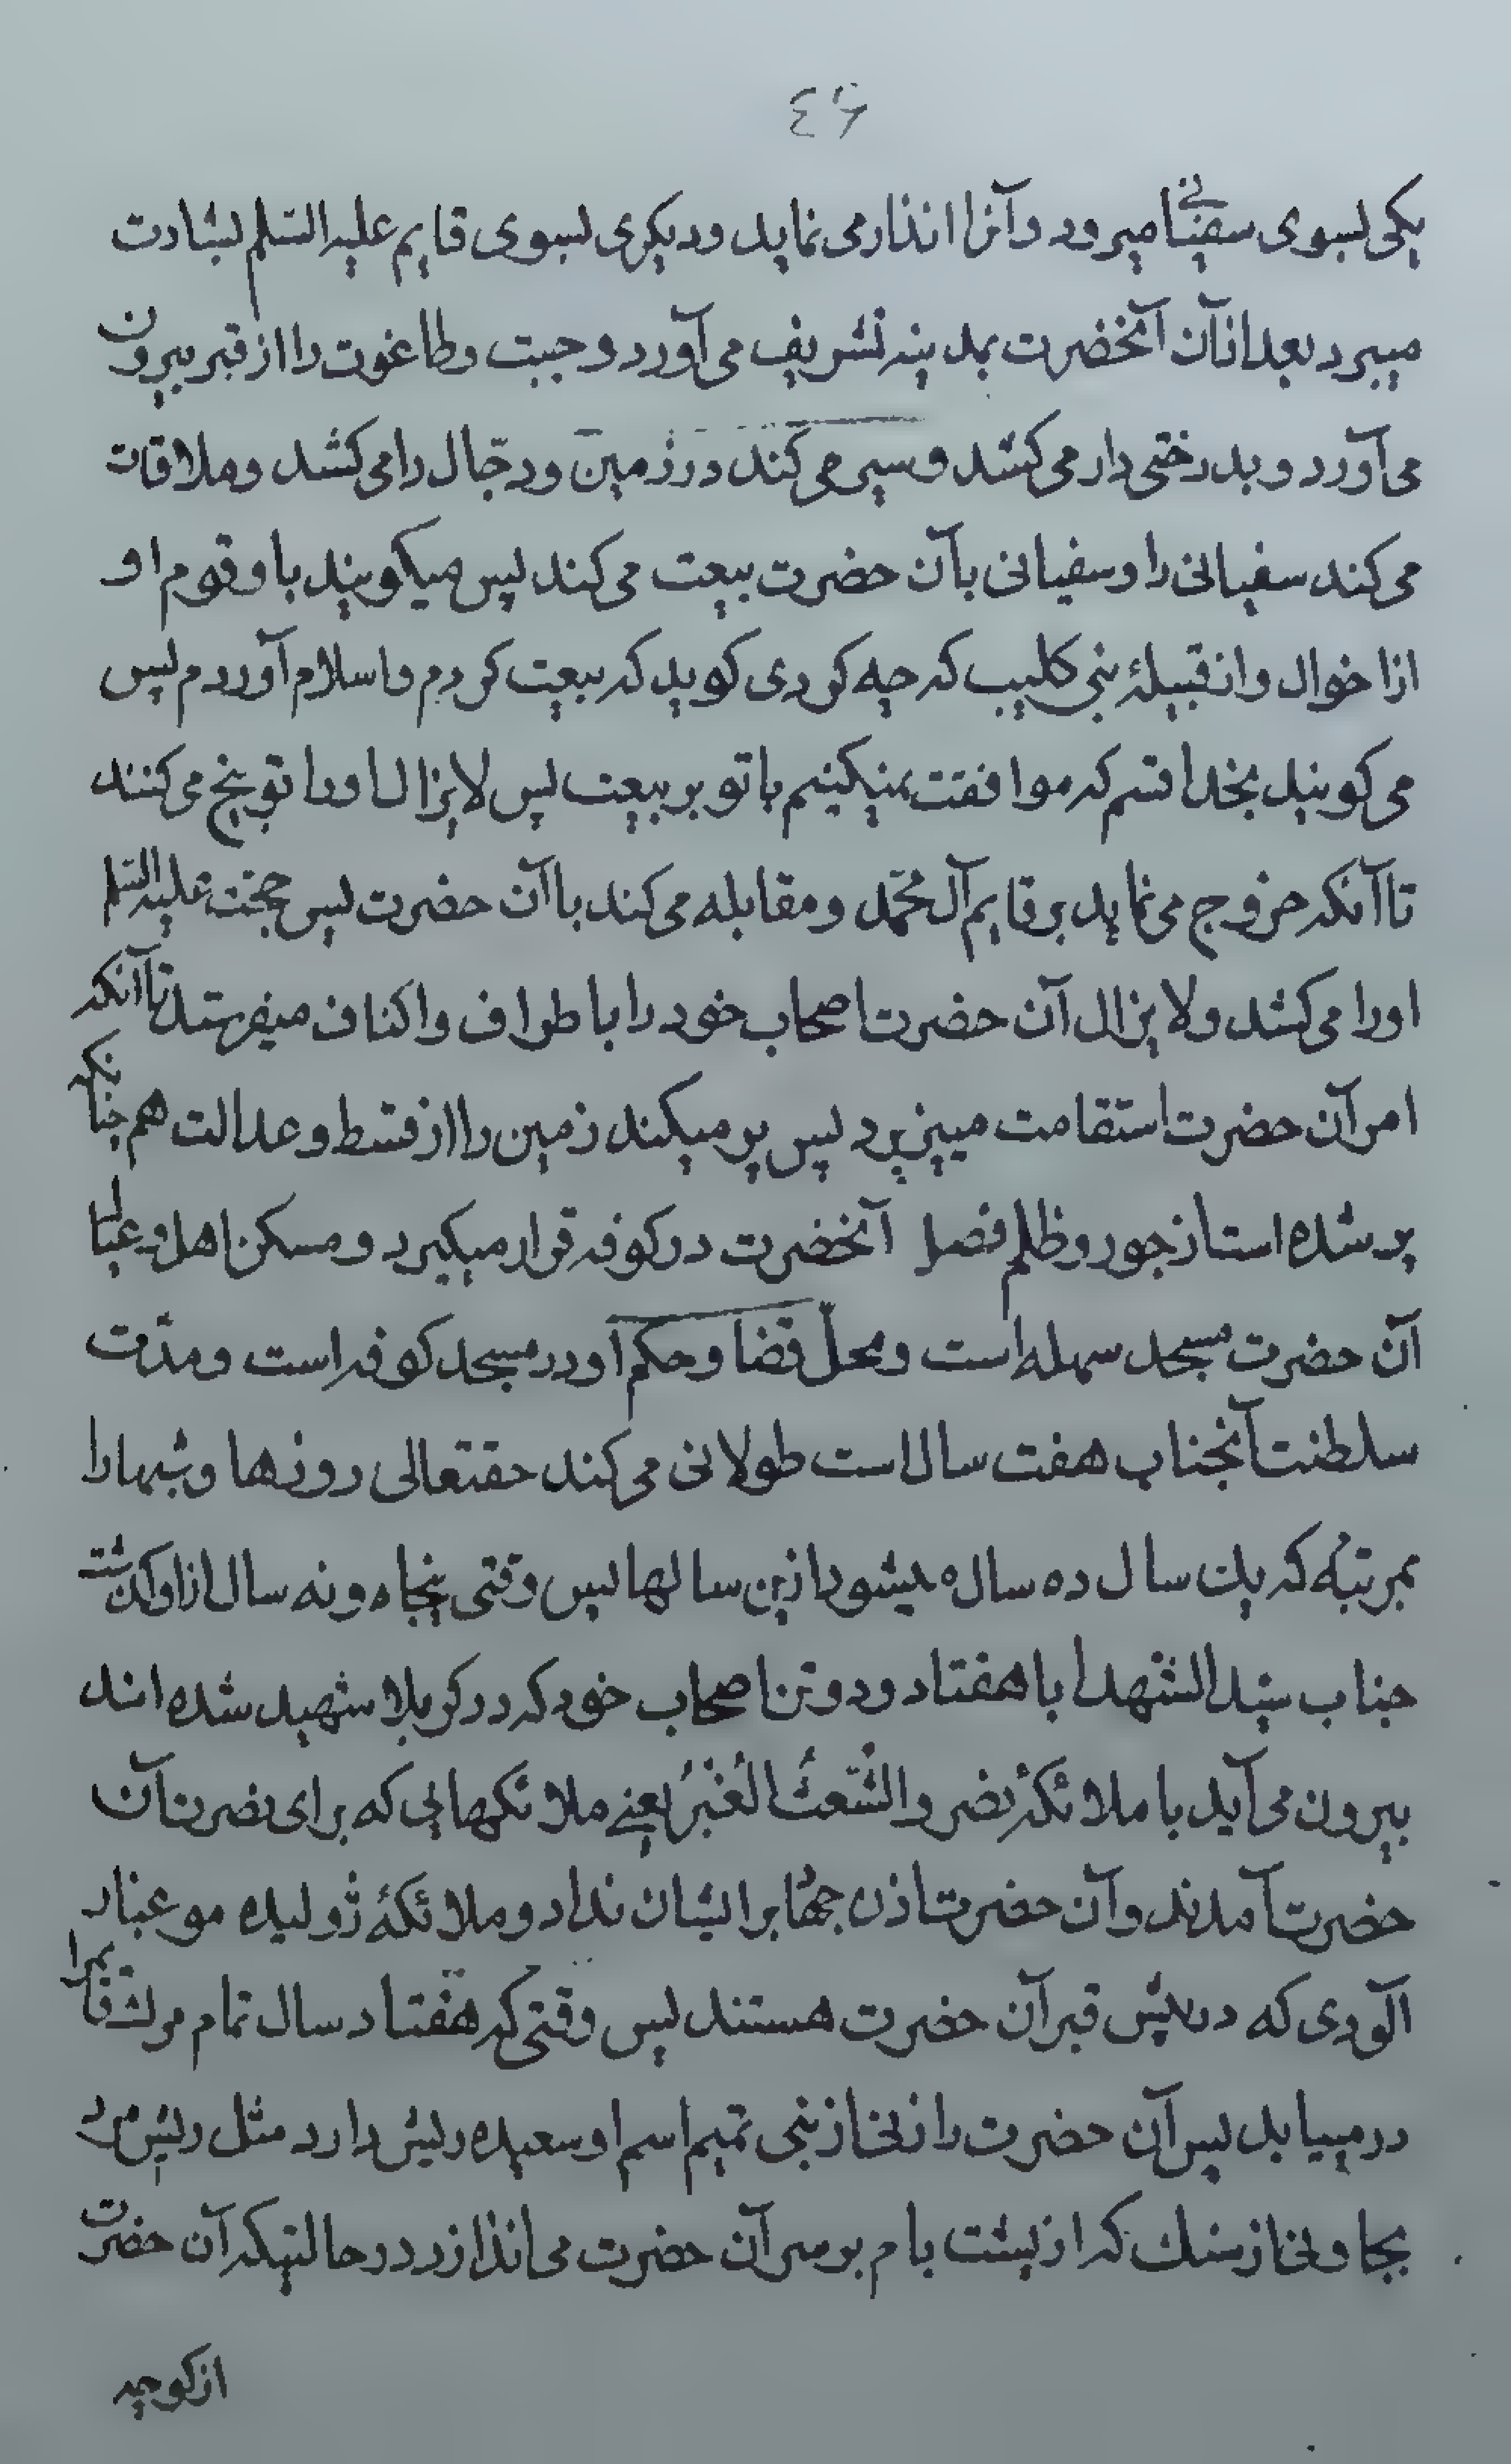 ٤۶
یکی بسوی سفیانی میرود و آنرا انذار می نماید و دیکری بسوی قایم علیه السّلم بشارت
میبرد بعد از آن آنحضرت بمدینه تشریف می آورد و جبت و طاغوت را از قبر بیرون
می آورد و بدرختی دار می کشد و سیر می کند در زمین و دجّال را می کشد و ملاقات
می کند سفیانی را و سفیانی بآن حضرت بیعت می کند پس میکویند باو قوم او
از اخوال و از قبیلهٔ بنی کلیب که چه کردی کوید که بیعت کردم و اسلام آوردم پس
می کویند بخدا قسم که موافقت نمیکنیم با تو بر بیعت پس لایزال او را توبیخ می کنند
تا آنکه خروج می نماید بر قایم آل محمّد و مقابله می کند با آن حضرت پس حجّت علیه السّلم
او را می کشد و لایزال آن حضرت اصحاب خود را باطراف و اکناف میفرستد تا آنکه
امر آن حضرت استقامت میپذیرد پس پر میکند زمین را از قسط و عدالت هم چنانکه
پر شده است از جور و ظلم فصل آنحضرت در کوفه قرار میکیرد و مسکن اهل و عیال
آن حضرت مسجد سهله است و محلّ قضا و حکم او در مسجد کوفه است و مدّت
سلطنت آنجناب هفت سال است طولانی می کند حقتعالی روزها و شبها را
بمرتبهٔ که یک سال ده سال میشود ازین سالها پس وقتی پنجاه و نه سال از او کذشت
جناب سیّد الشّهدا با هفتاد و دو تن اصحاب خود که در کربلا شهید شده اند
بیرون می آید با ملائکهٔ نصر و الشُّعثُ الغُبْرُ یعنے ملائکهایی که برای نصرت آن
حضرت آمدند و آن حضرت اذن جهاد بر ایشان نداد و ملائکهٔ ژولیده مو غبار
آلودی که در پیش قبر آن حضرت هستند پس وقتی که هفتاد سال تمام مرکش قایم را
در مییابد پس آن حضرت را زنی از بنی تمیم اسم او سعیده ریش دارد مثل ریش مرد
بجاونی از سنك که از پشت بام بر سر آن حضرت می اندازد در حالتیکه آن حضرت
از کوچه